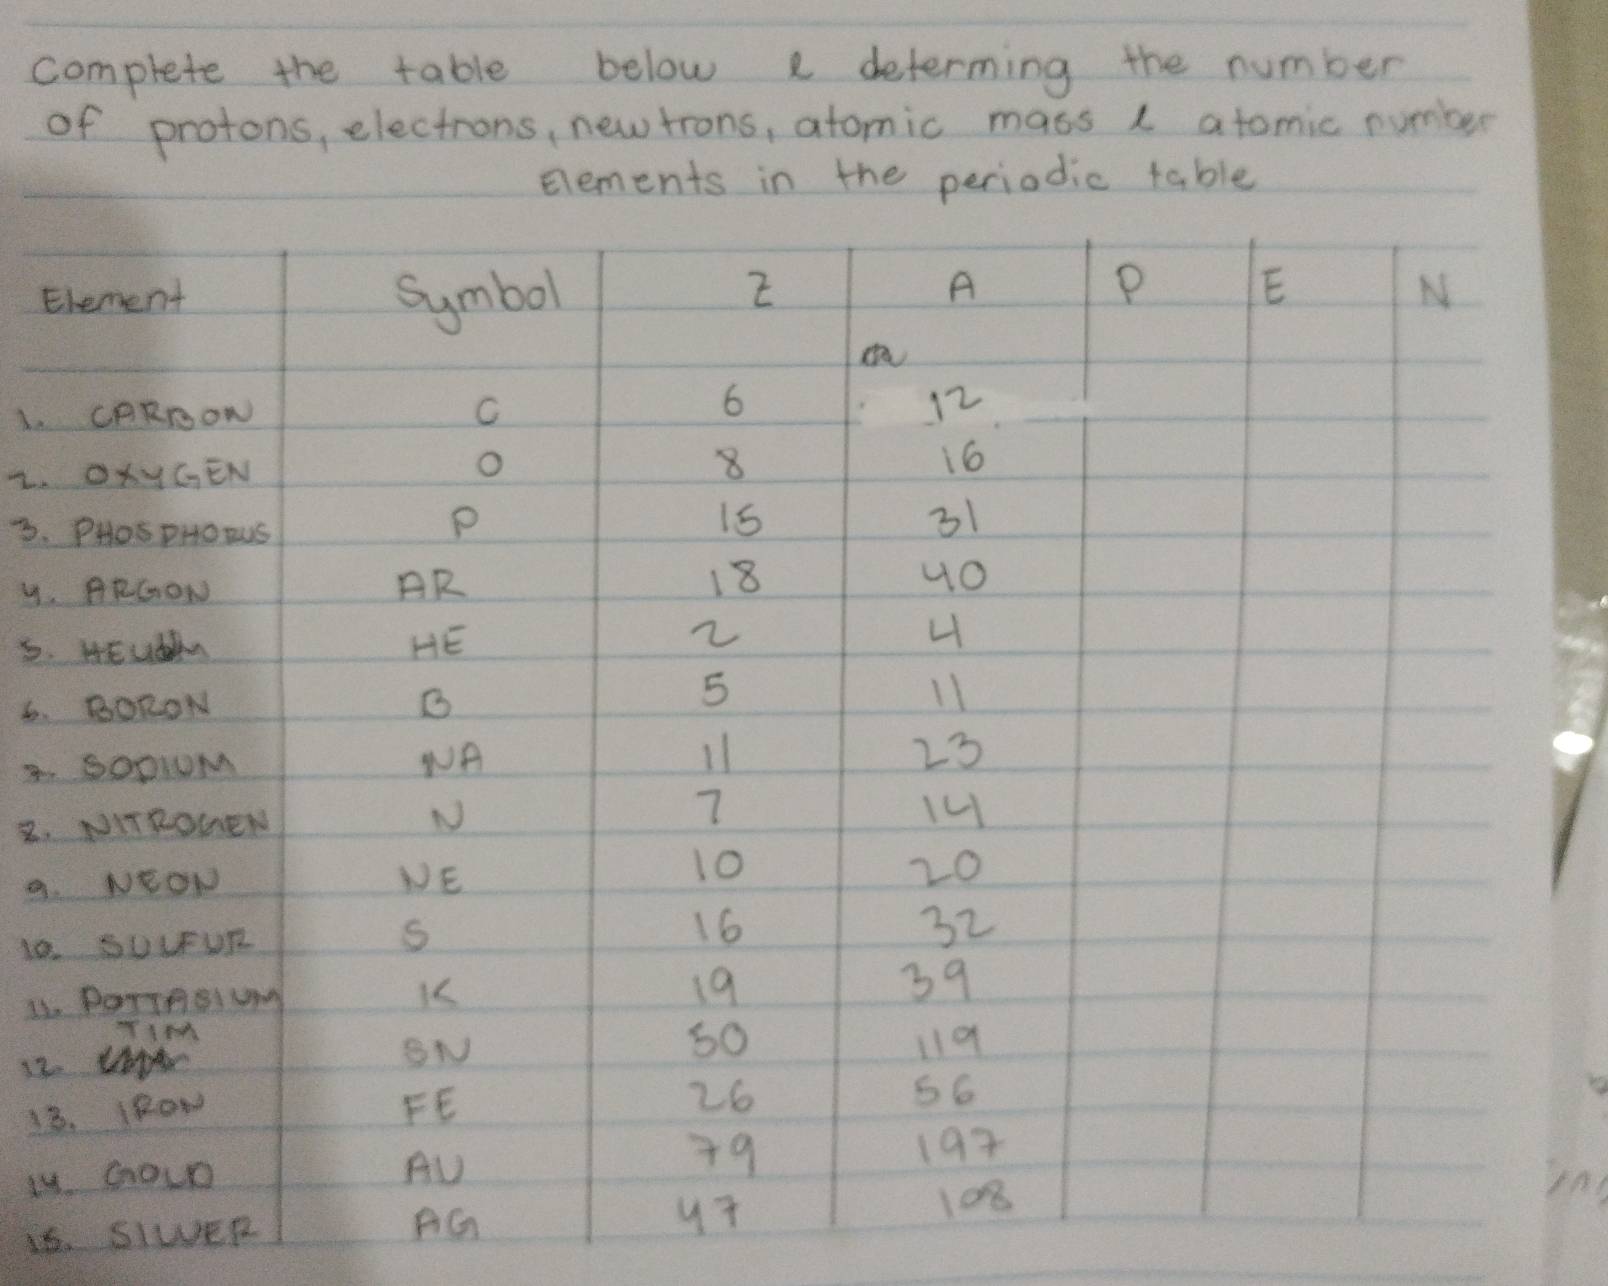 complete the table below & determing the number
of protons, electrons, newtrons, atomic mass & atomic number
Elements in the periodic table
Element Symbol Z A P E N
1. CARBON C 6 12
2. OXYGEN O 8 16
3. PHOSPHORUS P 15 31
4. ARGON AR 18 40
5. HELIUM HE 2 4
6. BORON B 5 11
7. SODIUM NA 11 23
8. NITROGEN N 7 14
9. NEON NE 10 20
10. SULFUR S 16 32
11. POTTASIUM K 19 39
TIM
12. SN 50 119
13. IRON FE 26 56
14. GOLD AU 79 197
15. SILVER AG 47 108